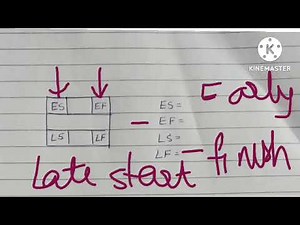 KINEMASTER
ES EF
LS LF
ES =
EF =
LS =
LF =
Early
late start - finish